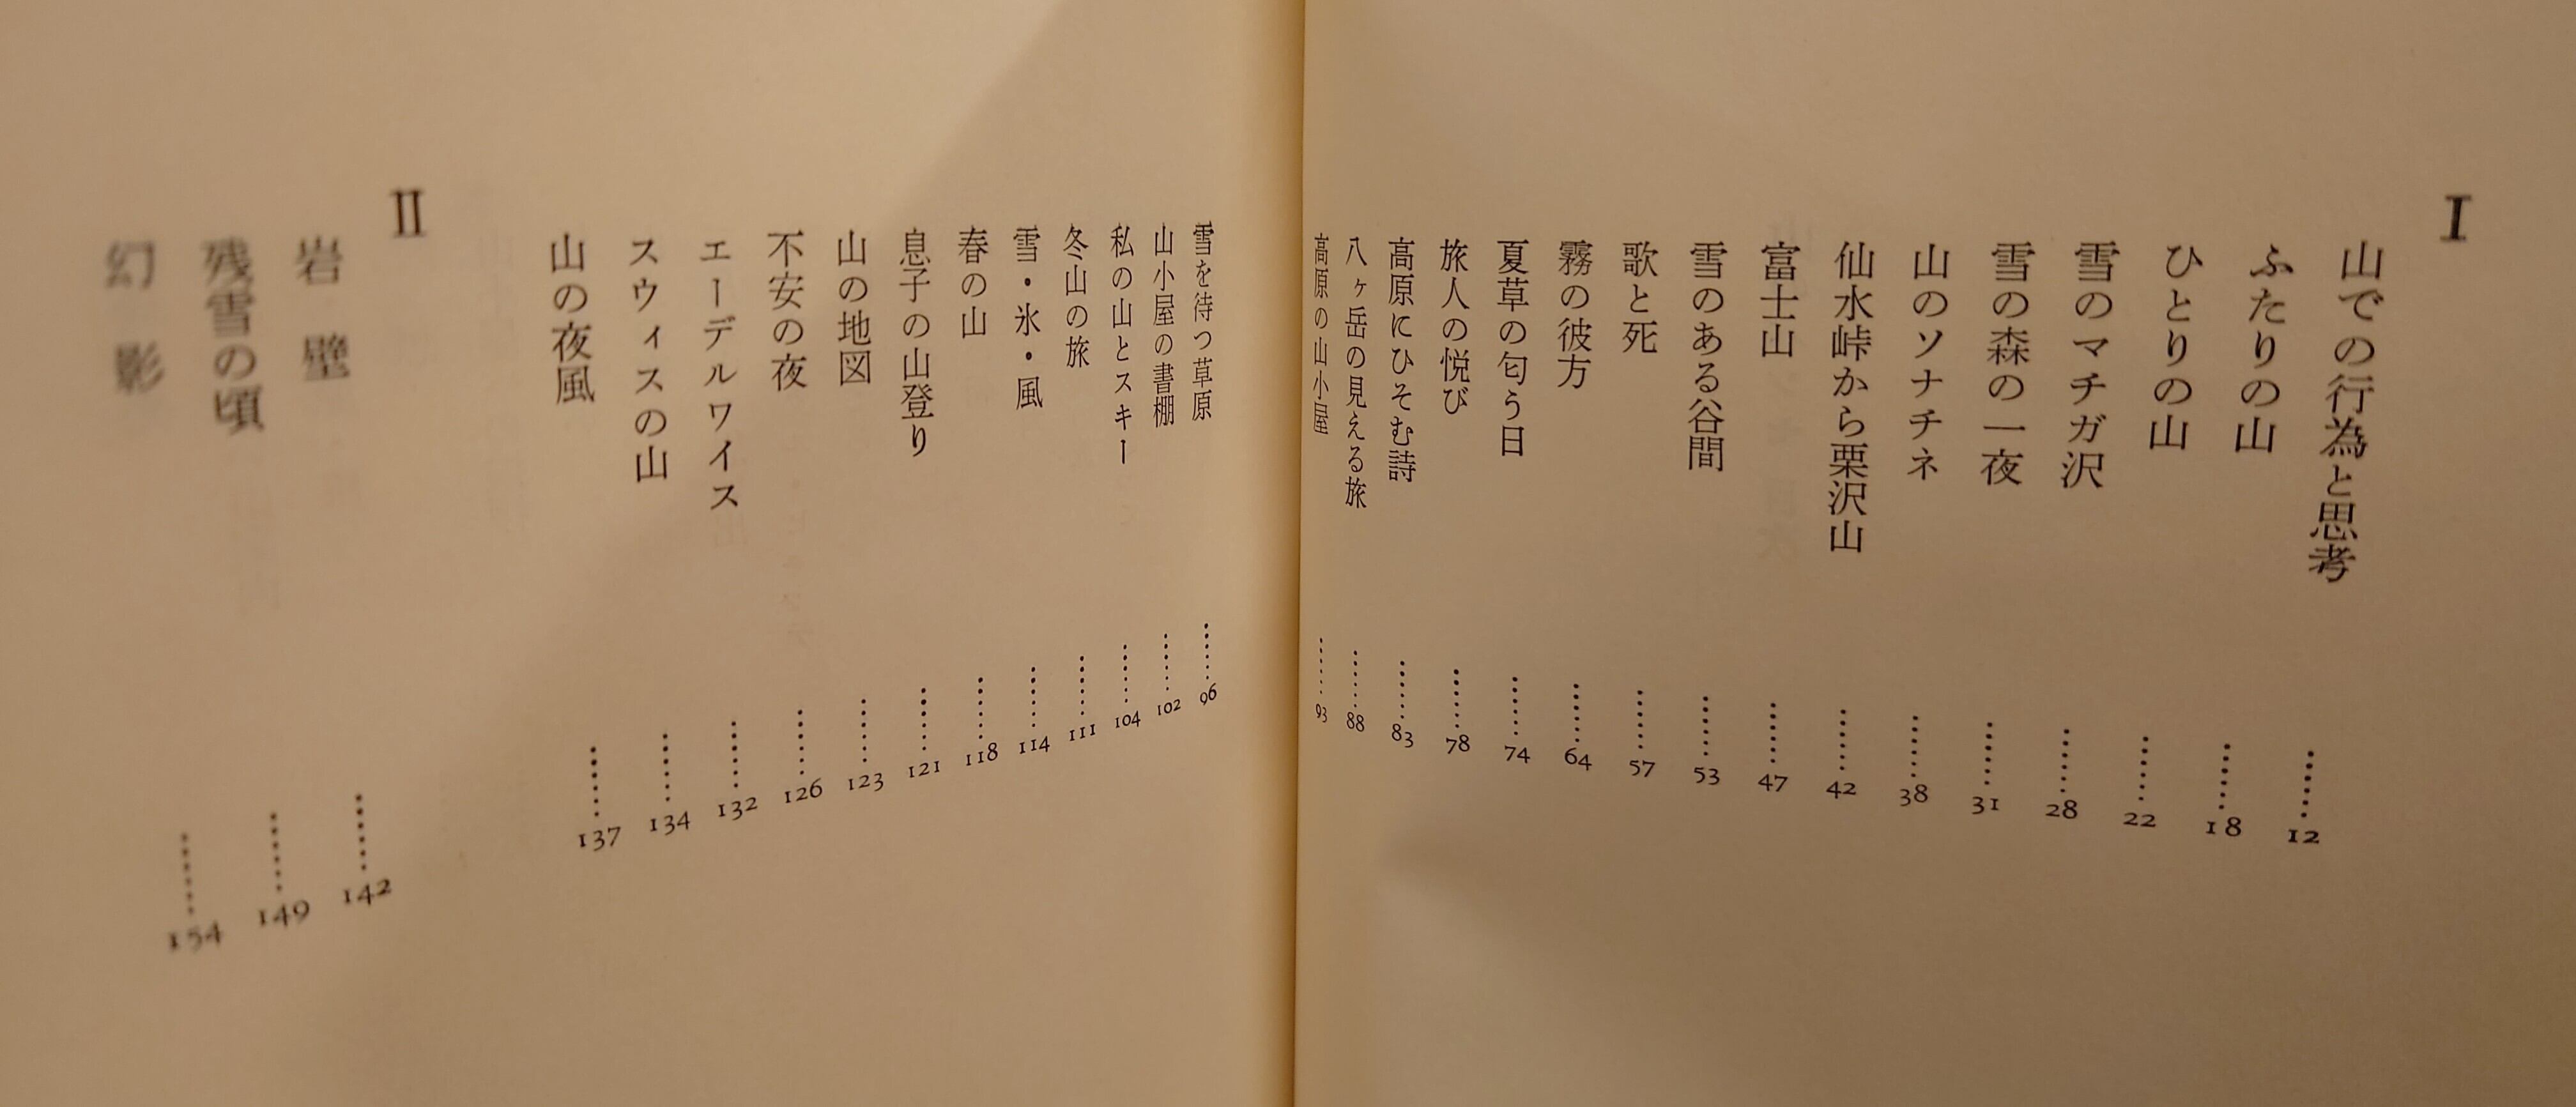 I
山での行為と思考……12
ふたりの山……18
ひとりの山……22
雪のマチガ沢……28
雪の森の一夜……31
山のソナチネ……38
仙水峠から栗沢山……42
富士山……47
雪のある谷間……53
歌と死……57
霧の彼方……64
夏草の匂う日……74
旅人の悦び……78
高原にひそむ詩……83
八ヶ岳の見える旅……88
高原の山小屋……93
雪を待つ草原……96
山小屋の書棚……102
私の山とスキー……104
冬山の旅……111
雪・氷・風……114
春の山……118
息子の山登り……121
山の地図……123
不安の夜……126
エーデルワイス……132
スウィスの山……134
山の夜風……137
II
岩　壁……142
残雪の頃……149
幻　影……154